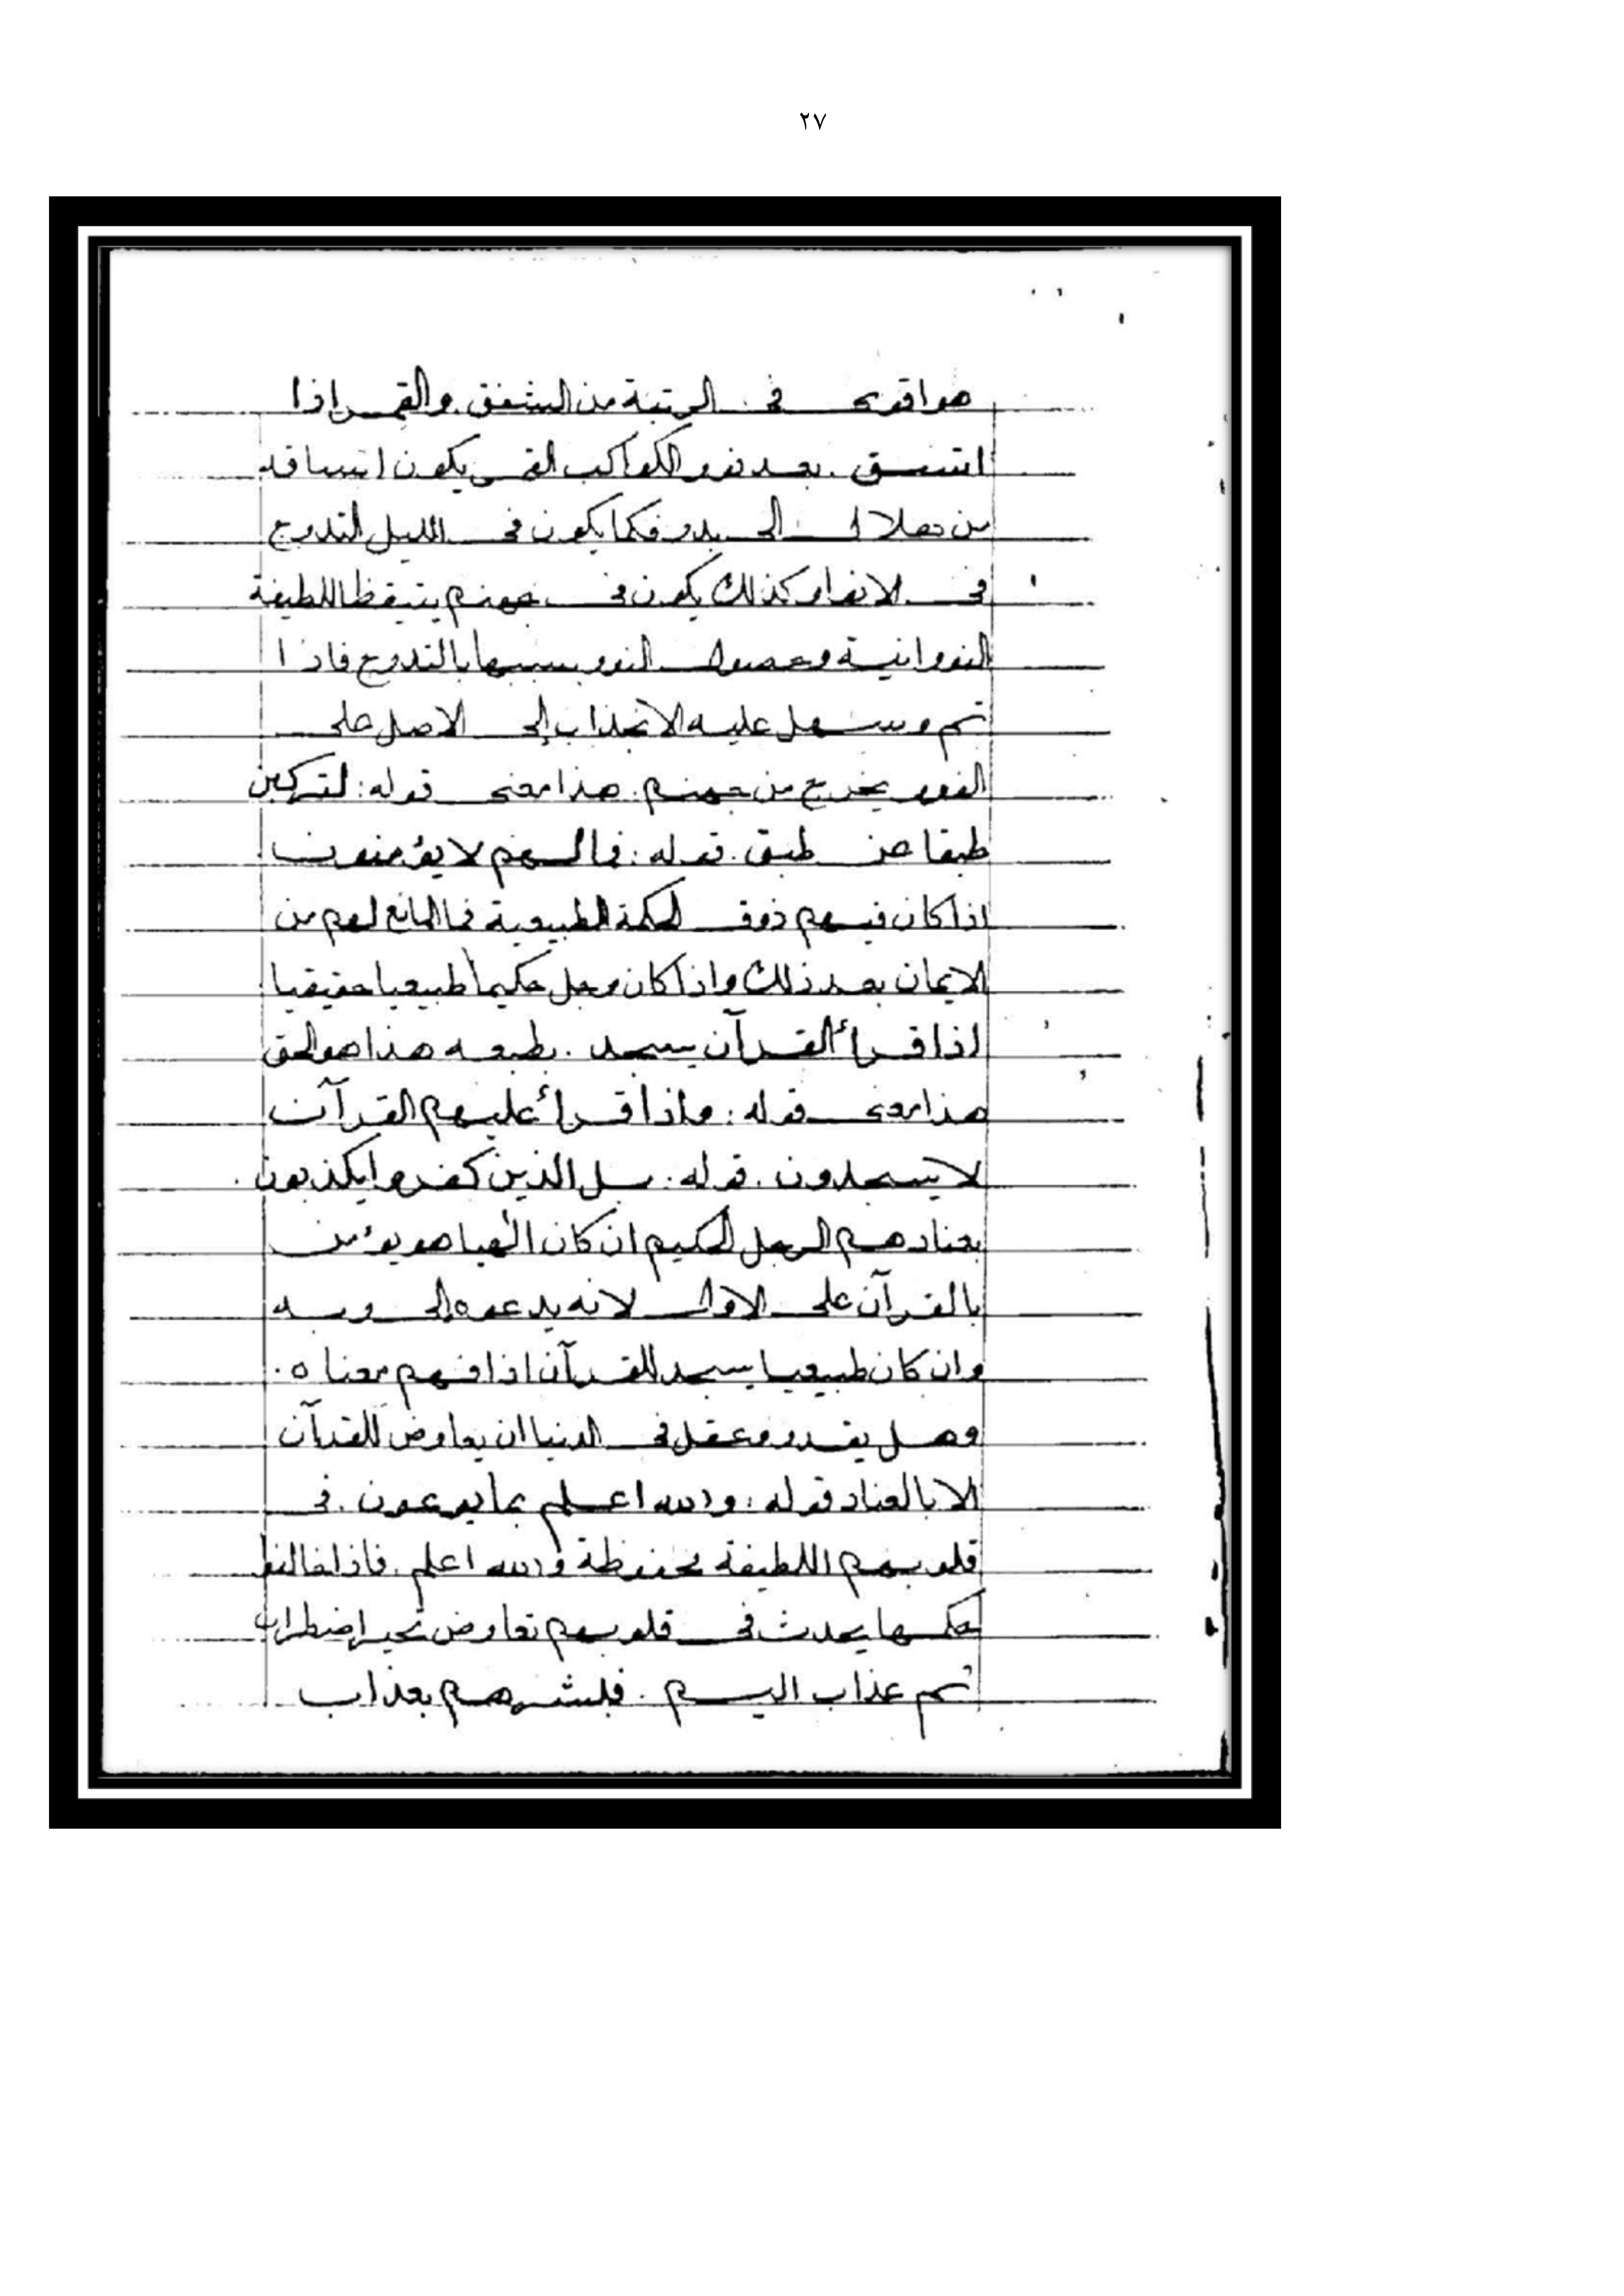 ٢٧
هو اقوى فى الرتبة من الشفق. والقمر اذا
اتسق. بعد نور الكواكب القمر يكون اتساقه
من هلال الى بدر فكما يكون فى الليل التدرج
فى الانوار كذلك يكون فى جهنم يتيقظ اللطيفة
النورانية وحصول النور بسببها بالتدرج فاذا
تم وسهل عليه الانجذاب إلى الاصل على
الفور يخرج من جهنم. هذا معنى قوله: لتركبن
طبقا عن طبق. قوله: فما لهم لا يؤمنون
اذا كان فيهم ذوق الحكمة الطبيعية فما المانع لهم من
الايمان بعد ذلك واذا كان رجل حكيما طبيعيا حقيقيا
اذا قرأ القرآن يسجد. بطبعه هذا هو الحق
هذا معنى قوله: واذا قرأ عليهم القرآن
لا يسجدون. قوله: بل الذين كفروا يكذبون.
بعنادهم الرجل الحكيم ان كان الٰهيا هو يؤمن
بالقرآن على الاول لانه يدعوه الى ربه
وان كان طبيعيا يسجد للقرآن اذا فهم معناه.
وهل يقدر عقل فى الدنيا ان يعارض للقرآن
الا بالعناد قوله: والله اعلم بما يوعون. فى
قلوبهم اللطيفة محفوظة والله اعلم. فاذا خالفوا
حكمها يحدث فى قلوبهم تعارض تحير اضطراب
ثم عذاب اليم. فبشرهم بعذاب